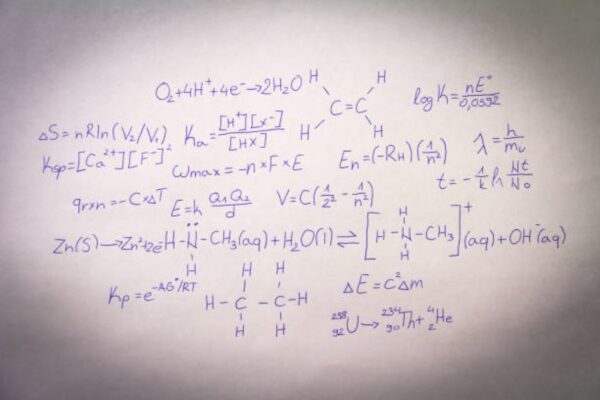 O₂+4H⁺+4e⁻→2H₂O
H H
C=C
H H
log K = nE°/0,0592
ΔS = nRln(V₂/V₁)
Ka = [H⁺][X⁻]/[HX]
Ksp=[Ca²⁺][F⁻]²
ωmax=-n×F×E
En=(-RH)(1/n²)
λ = h/mv
t=-1/k ln Nt/N₀
qrxn=-C×ΔT
E=k Q₁Q₂/d
V=C(1/2² - 1/n²)
Zn(S)→Zn²⁺+2e⁻
H-N-CH₃(aq)+H₂O(l)⇌[H-N-CH₃]⁺(aq)+OH⁻(aq)
H H
H
Kp=e^-ΔG°/RT
H H
H-C-C-H
H H
ΔE=c²Δm
²³⁸₉₂U→²³⁴₉₀Th+⁴₂He